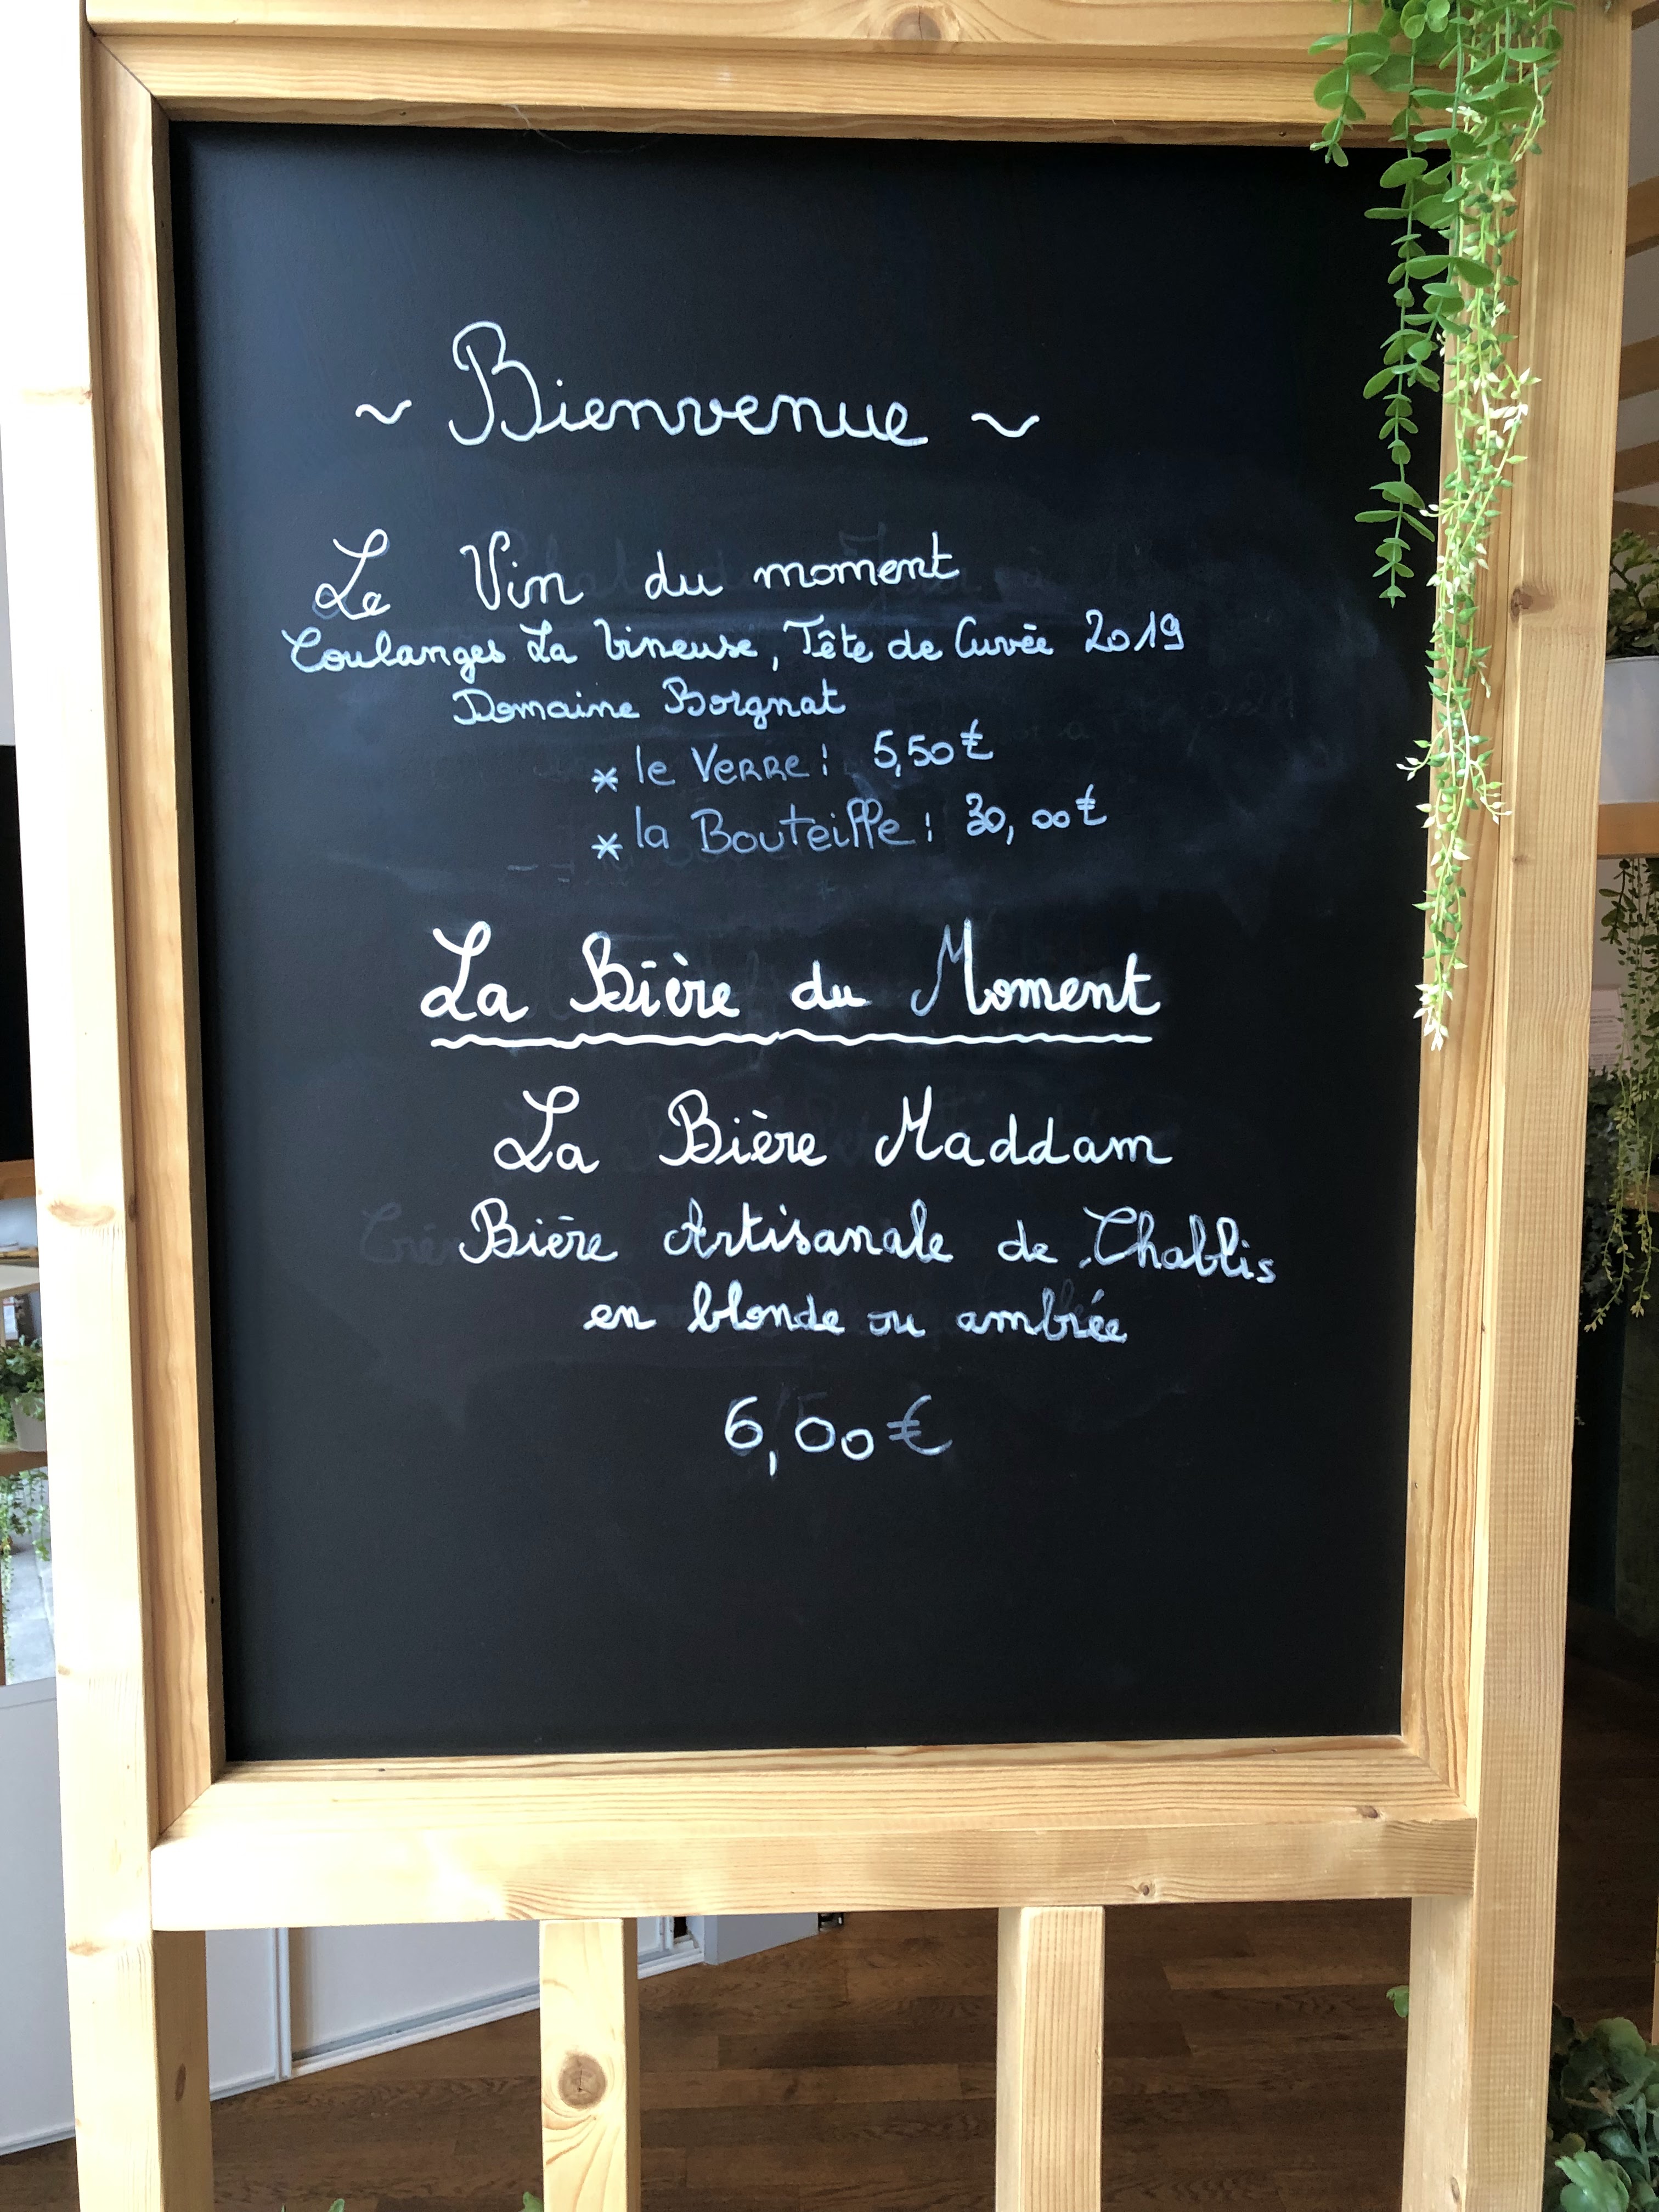 ~ Bienvenue ~
Le Vin du moment
Coulanges La Vineuse, Tête de Cuvée 2019
Domaine Borgnat
* le Verre : 5,50€
* la Bouteille : 30,00€
La Bière du Moment
La Bière Maddam
Bière Artisanale de Chablis
en blonde ou ambrée
6,00€